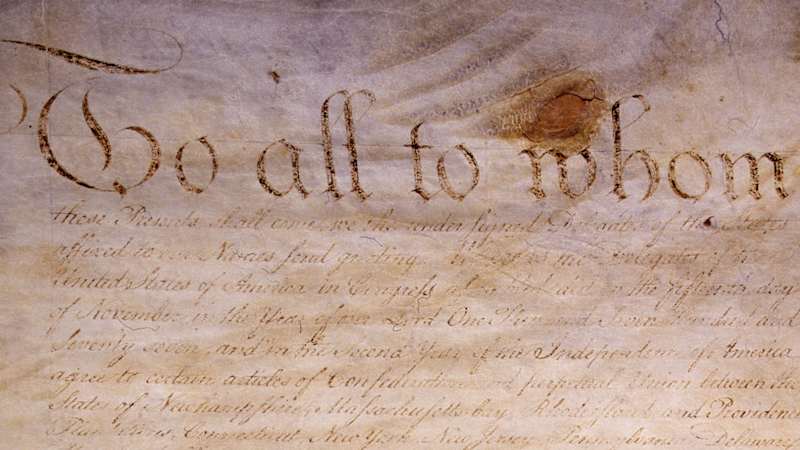 To all to whom
these Presents shall come, we the undersigned Delegates of the States
affixed to our Names send greeting. Whereas the Delegates of the
United States of America in Congress assembled did on the fifteenth day
of November in the Year of our Lord One Thousand Seven Hundred and
Seventy seven, and in the Second Year of the Independence of America
agree to certain articles of Confederation and perpetual Union between the
States of Newhampshire, Massachusetts-bay, Rhodeisland and Providence
Plantations, Connecticut, New York, New Jersey, Pennsylvania, Delaware